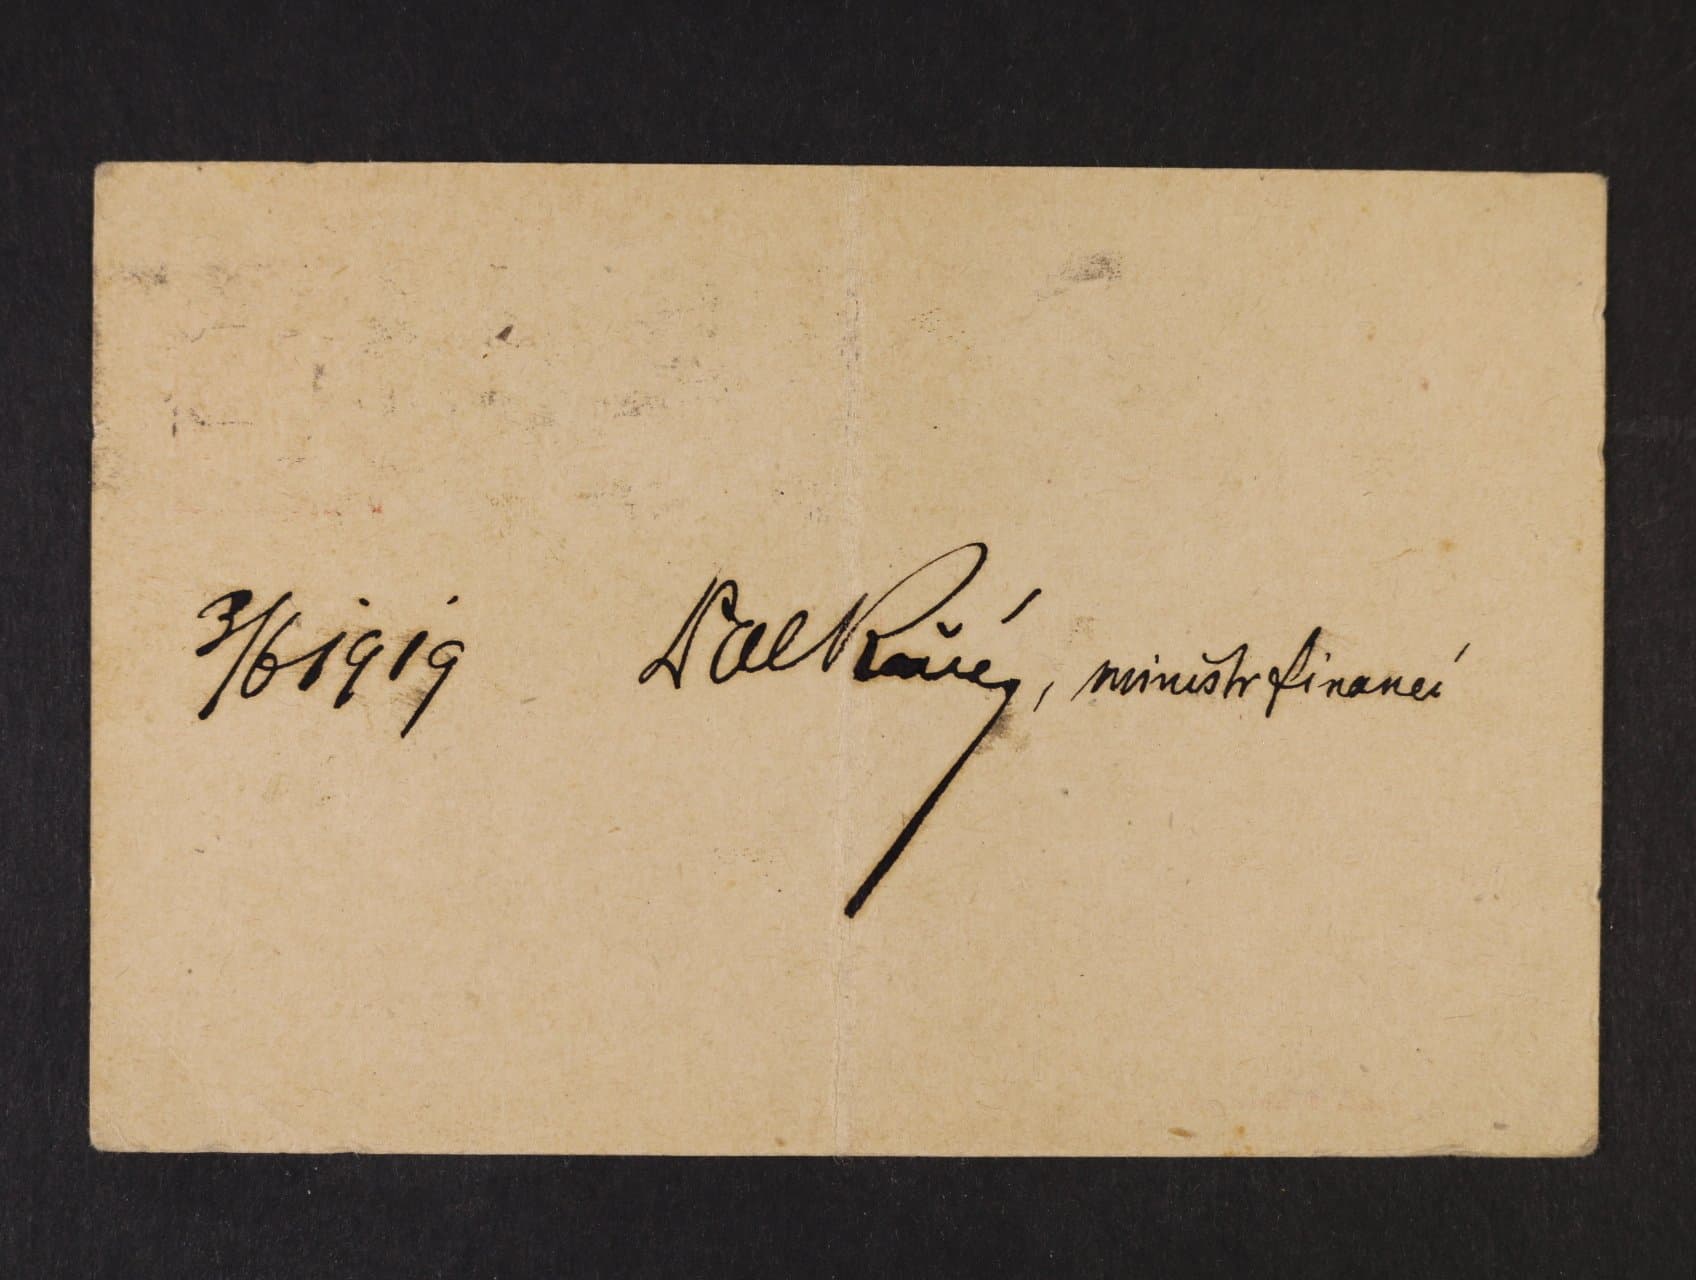 3/6 1919 Dr Al Rašín, ministr financí